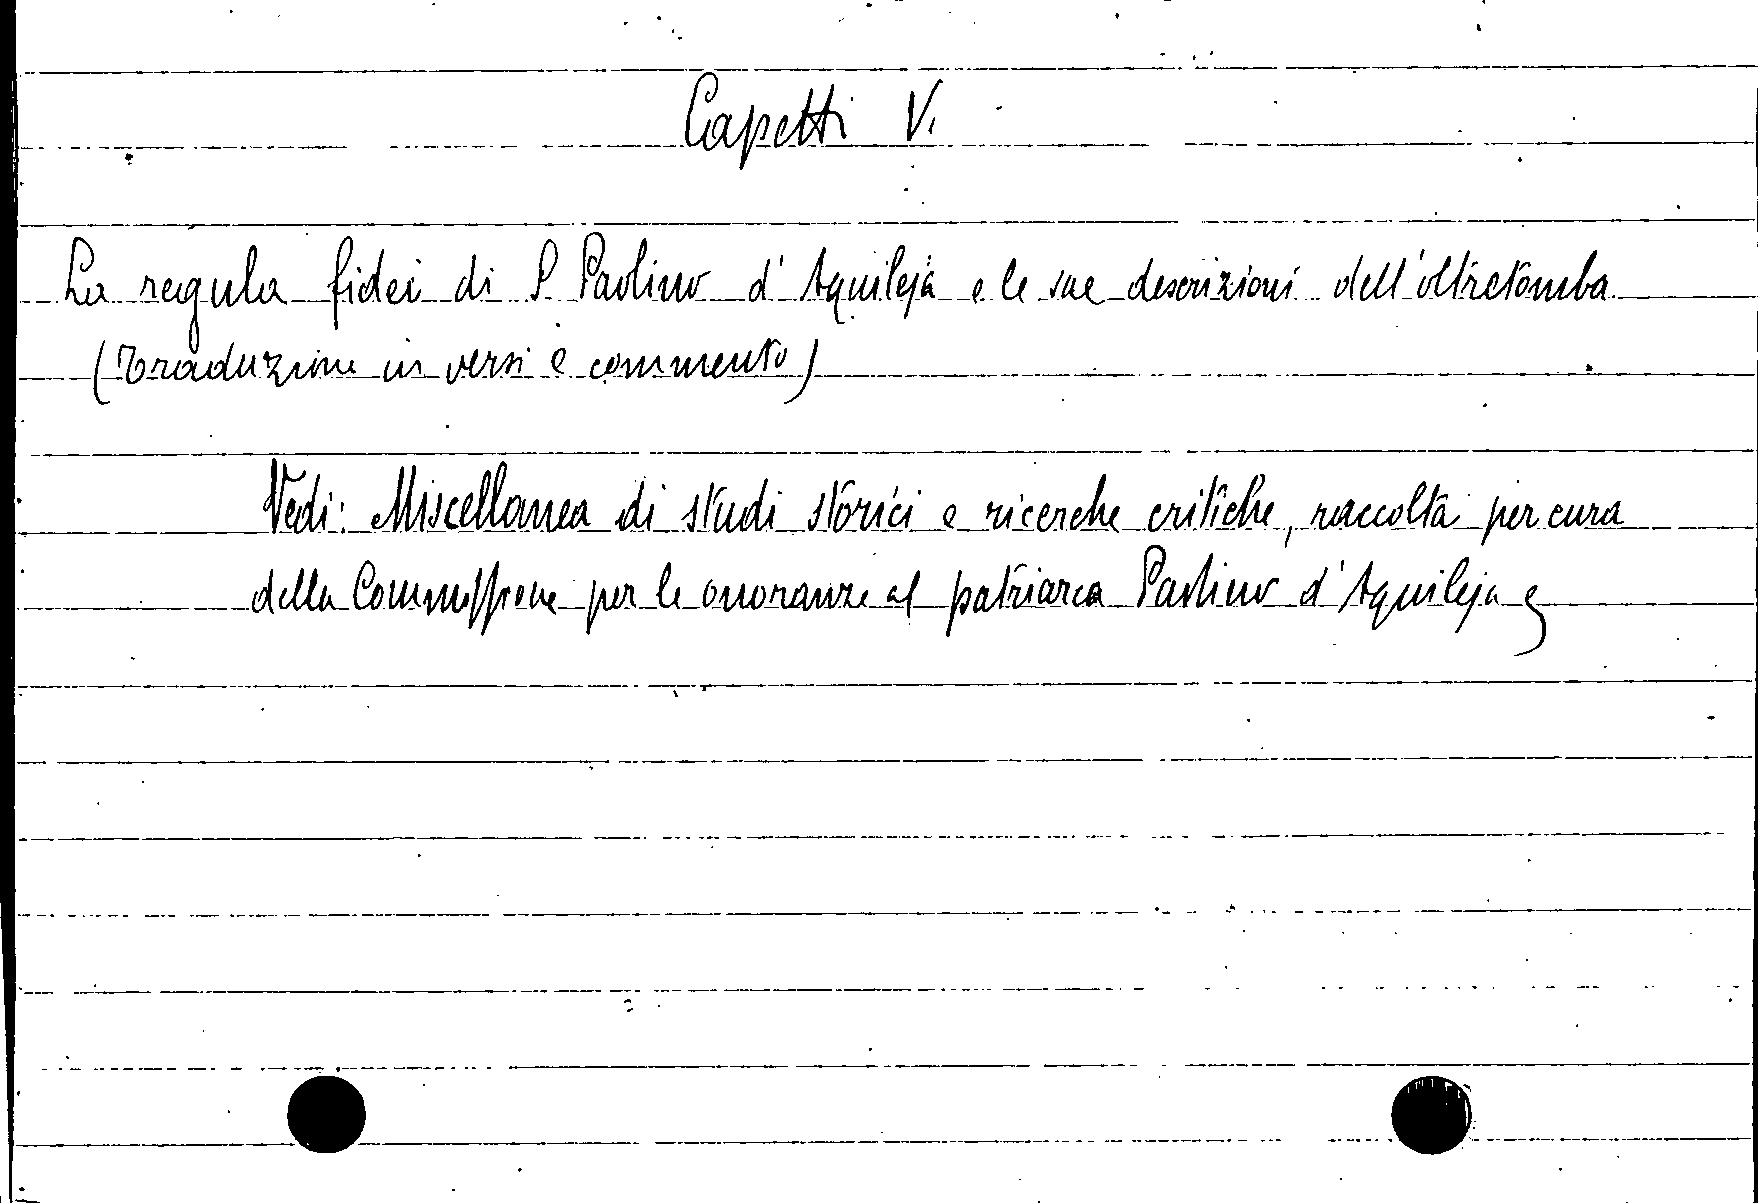 Capetti V.
La regula fidei di S Paolino d'Aquileja e le sue descrizioni dell'oltretomba
(Traduzione in versi e commento)
Vedi: Miscellanea di studi storici e ricerche critiche, raccolta per cura
della Commissione per le onoranze al patriarca Paolino d'Aquileja